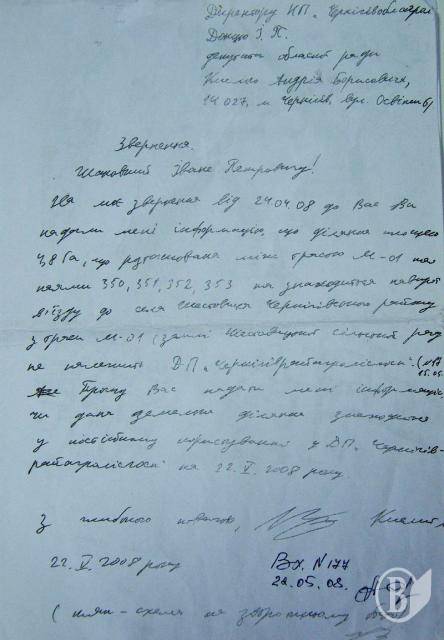 Директору КП "Чернігівоблагроліс
Донцю І. П.
депутата обласної ради
Андрія Борисовича,
14027, м. Чернігів, вул.
Звернення.
Шановний Іване Петровичу!
На моє звернення від 24.04.08 до Вас Ви
надали мені інформацію, що ділянка площею
3,8 га, що розташована між трасою М-01 та
паями 350, 351, 352, 353 та знаходиться навпроти
в'їзду до села Шестовиця Чернігівського району
з траси М-01 (землі Шестовицької сільської ради
не належить ДП "Чернігіврайагролісгосп" (№177
15.05.
Прошу Вас надати мені інформацію
чи дана земельна ділянка знаходиться
у постійному користуванні у ДП "Чернігів-
райагролісгосп" на 22. V. 2008 року.
З глибокою повагою,
22. V. 2008 року
Вх. N 177
22.05.08.
(план-схема на зворотньому